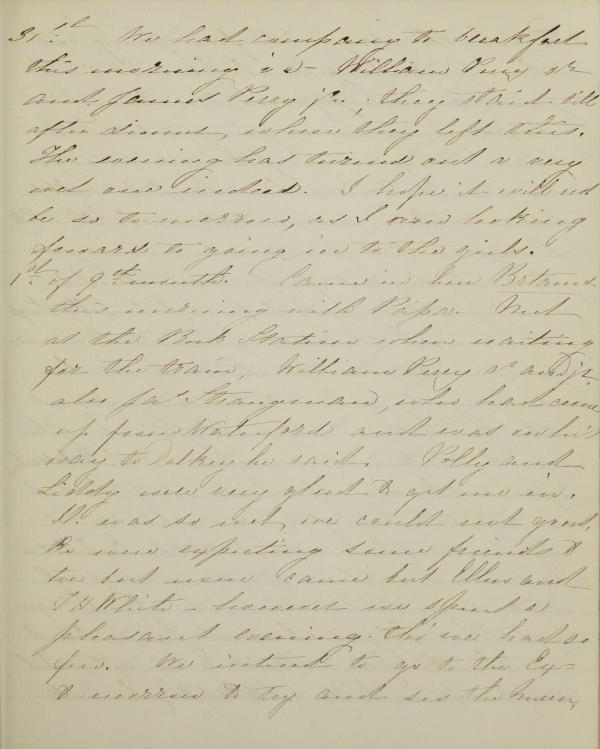 31st We had company to breakfast
this morning is - William Perry sr
and James Perry jr; they staid till
after dinner, when they left this.
The evening has turned out a very
wet one indeed. I hope it will not
be so to-morrow, as I am looking
forward to going in to the girls.
1st of 9th month. Came in here
this morning with Papa. Met
at the Station when waiting
for the train, William Perry sr and jr.
also Jas Strangman, who had come
up from Waterford and was on his
way to Dalkey he said. Polly and
Liddy were very glad to get me in.
It was so wet, we could not go out.
We were expecting some friends to
tea but none came but Ellen and
T H White - however we spent a
pleasant evening tho' we had so
few. We intend to go to the Ex=
to-morrow to try and see the Queen,